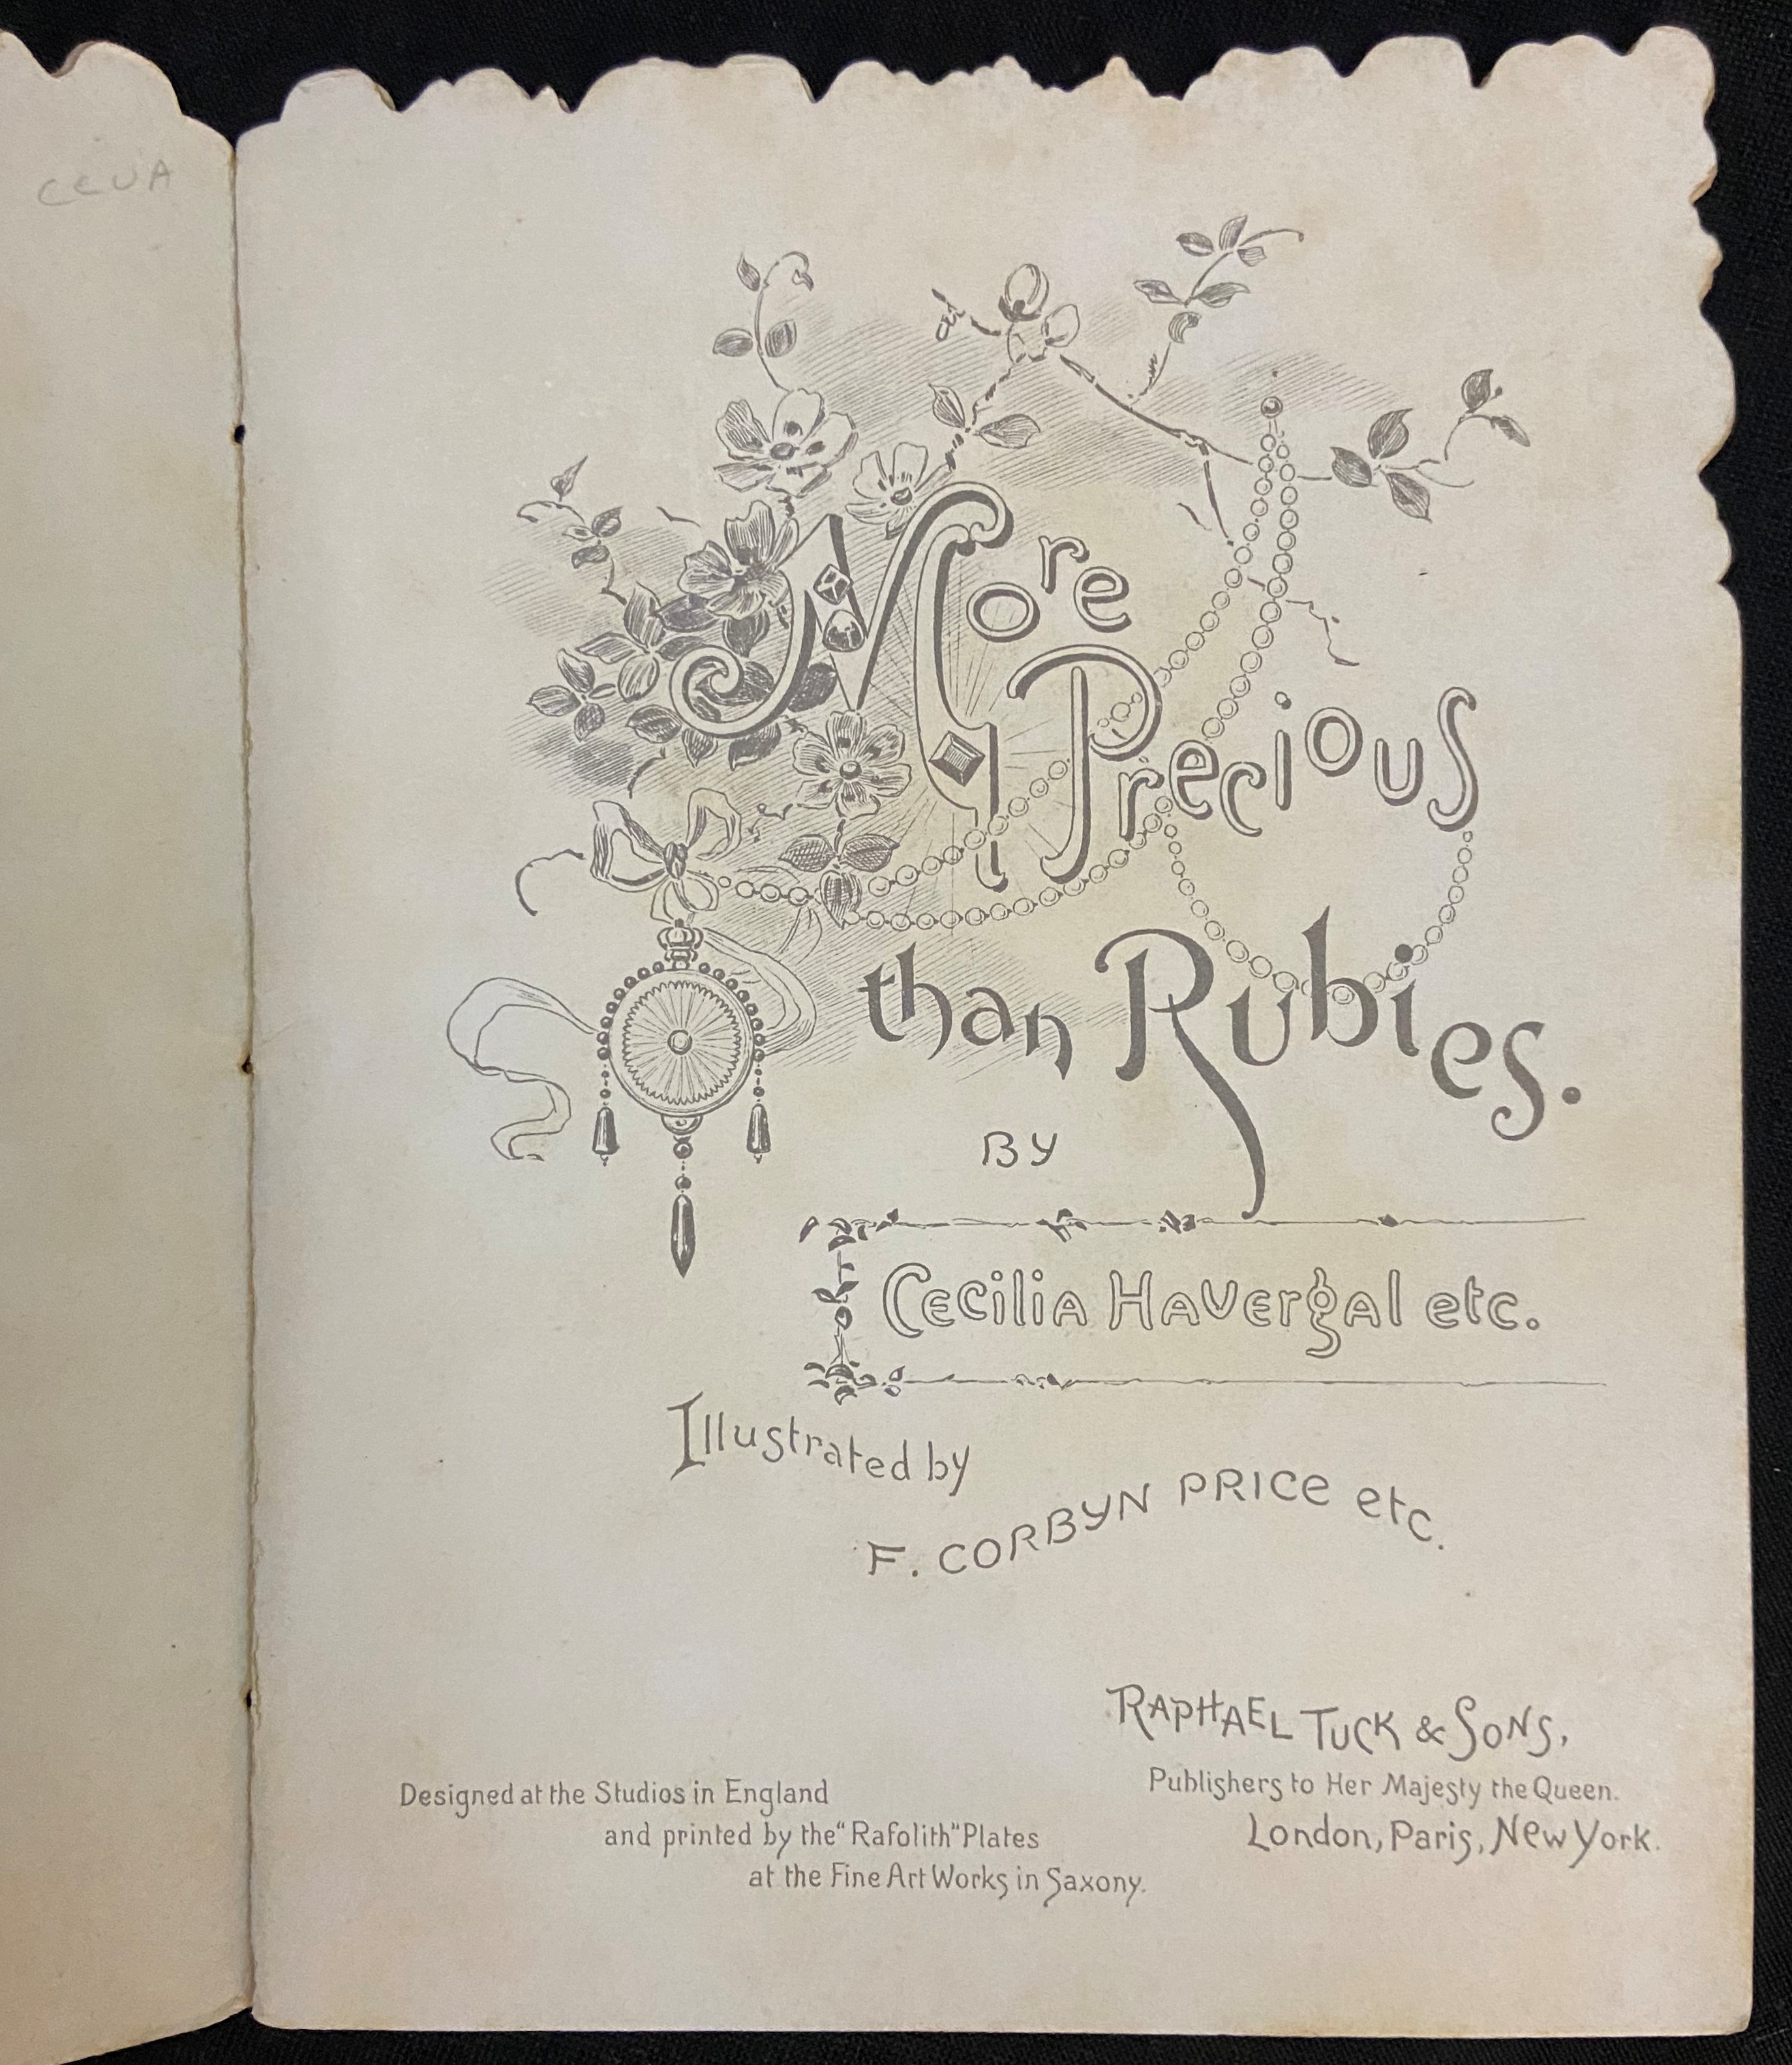 CCUA
More
Precious
than Rubies.
BY
Cecilia Havergal etc.
Illustrated by
F. CORBYN PRICE etc.
RAPHAEL TUCK & SONS,
Publishers to Her Majesty the Queen.
London, Paris, New York.
Designed at the Studios in England
and printed by the "Rafolith" Plates
at the Fine Art Works in Saxony.